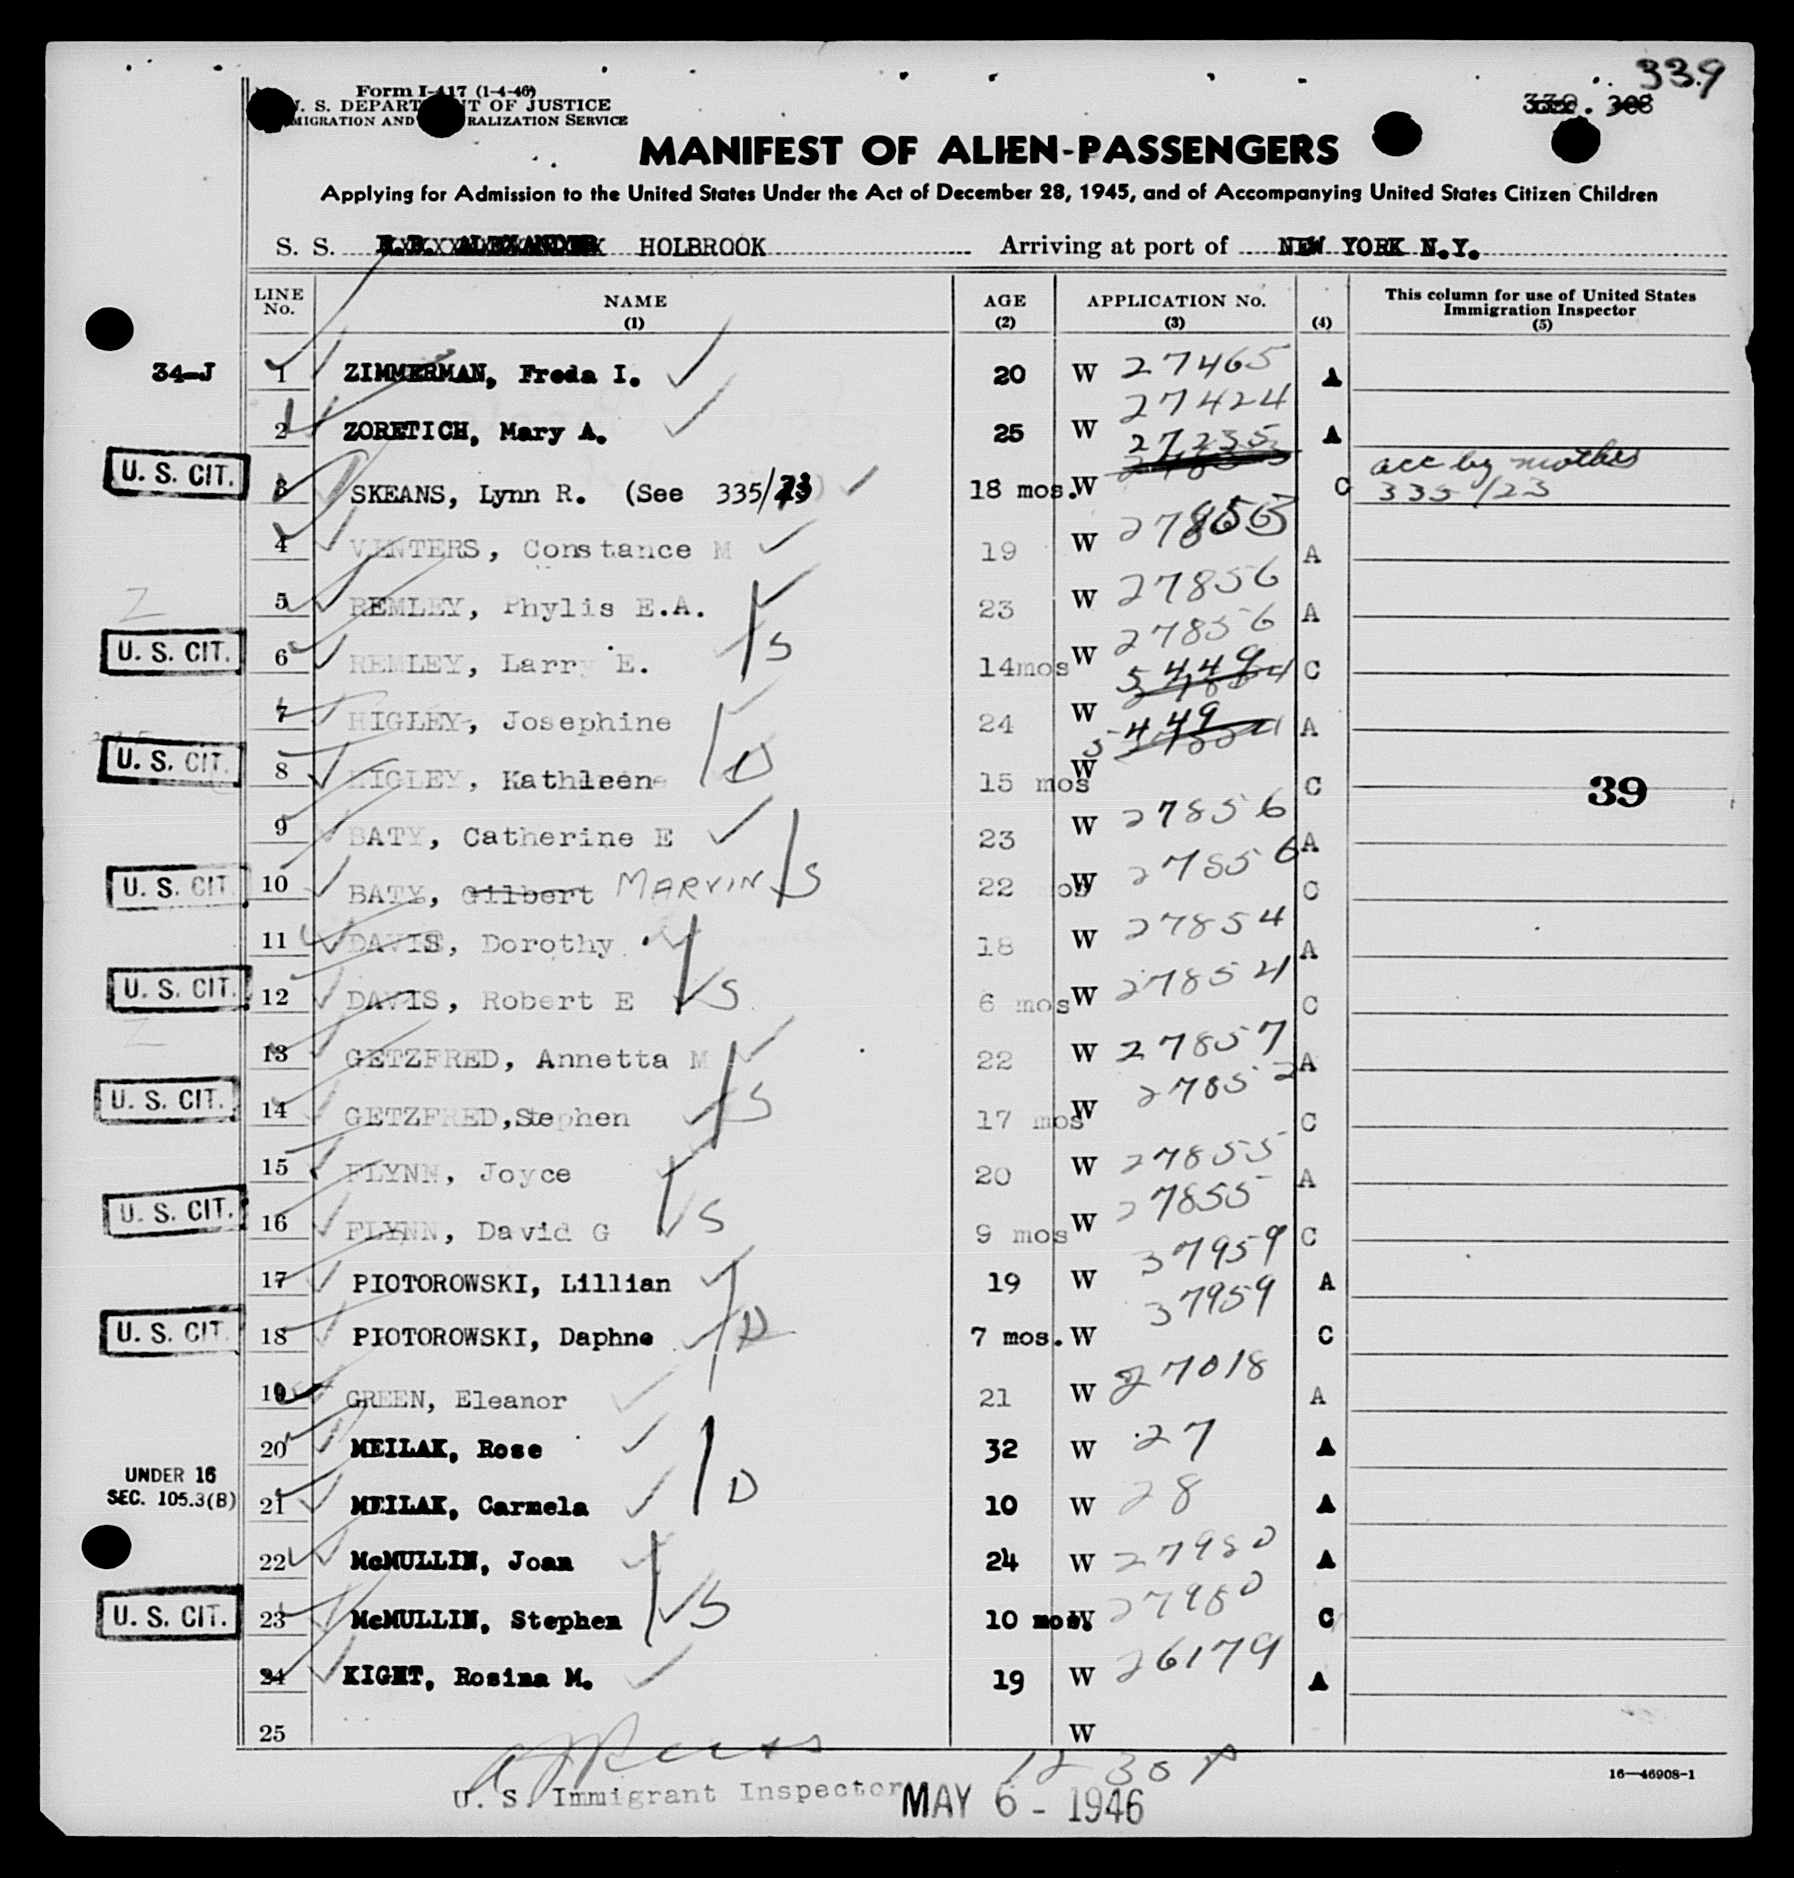 339
Form I-417 (1-4-46)
U. S. DEPARTMENT OF JUSTICE
IMMIGRATION AND NATURALIZATION SERVICE
MANIFEST OF ALIEN-PASSENGERS
Applying for Admission to the United States Under the Act of December 28, 1945, and of Accompanying United States Citizen Children
S. S. E.B. ALEXANDER HOLBROOK Arriving at port of NEW YORK N.Y.
LINE No. NAME (1) AGE (2) APPLICATION No. (3) (4) This column for use of United States Immigration Inspector (5)
34-J 1 ZIMMERMAN, Freda I. 20 W 27465 A
2 ZORETICH, Mary A. 25 W 27424 A
U. S. CIT. 3 SKEANS, Lynn R. (See 335/23) 18 mos. W 27235 C acc by mother 335/23
4 WINTERS, Constance M 19 W 27853 A
5 REMLEY, Phylis E.A. 23 W 27856 A
U. S. CIT. 6 REMLEY, Larry E. S 14mos W 27856 C
7 HIGLEY, Josephine 24 W 5449 A
U. S. CIT. 8 HIGLEY, Kathleen D 15 mos W 5449 C 39
9 BATY, Catherine E 23 W 27856 A
U. S. CIT. 10 BATY, Gilbert MARVIN S 22 mos W 27856 C
11 DAVIS, Dorothy 18 W 27854 A
U. S. CIT. 12 DAVIS, Robert E S 6 mos W 27854 C
13 GETZFRED, Annetta M 22 W 27857 A
U. S. CIT. 14 GETZFRED, Stephen S 17 mos W 27852 C
15 FLYNN, Joyce 20 W 27855 A
U. S. CIT. 16 FLYNN, David G S 9 mos W 27855 C
17 PIOTOROWSKI, Lillian 19 W 37959 A
U. S. CIT. 18 PIOTOROWSKI, Daphne D 7 mos. W 37959 C
19 GREEN, Eleanor 21 W 27018 A
20 MEILAK, Rose 32 W 27 A
UNDER 16
SEC. 105.3(B) 21 MEILAK, Carmela D 10 W 28 A
22 McMULLIN, Joan 24 W 27980 A
U. S. CIT. 23 McMULLIN, Stephen S 10 mos. W 27980 C
24 KIGHT, Rosina M. 19 W 26179 A
25 W
16—46908-1
12 30 P
U. S. Immigrant Inspector MAY 6 - 1946